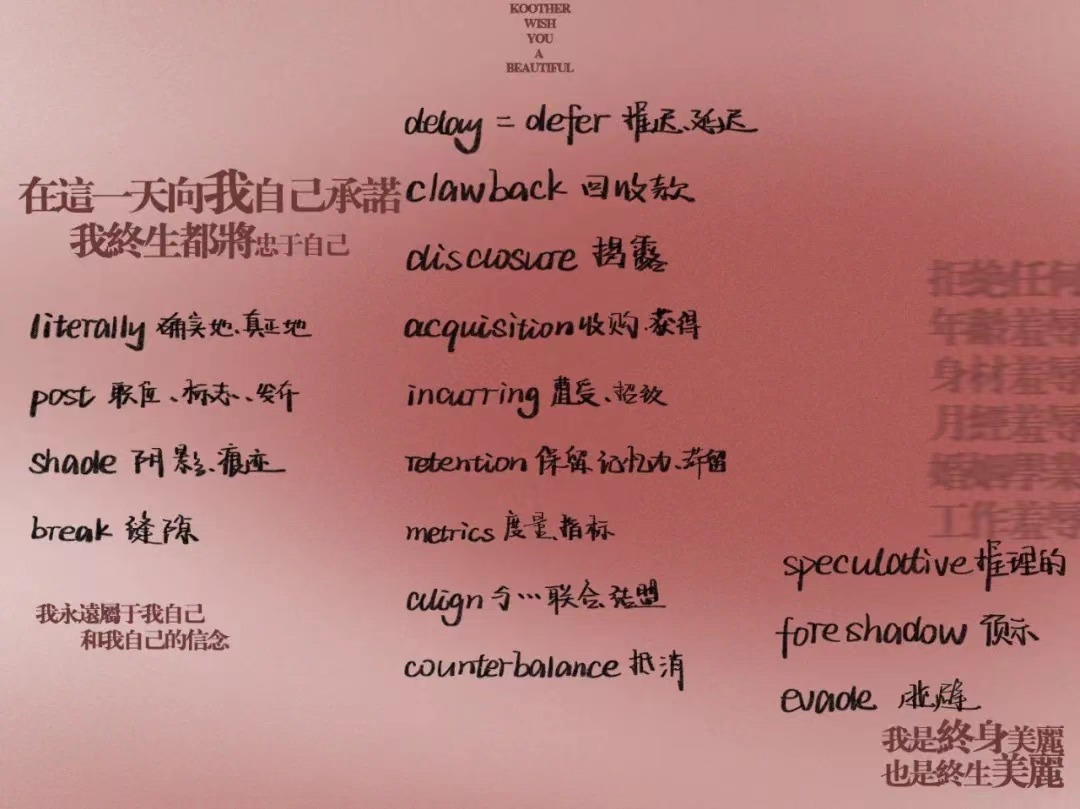 KOOTHER
WISH
YOU
A
BEAUTIFUL
在這一天向我自己承諾
我終生都將忠于自己
literally 确实地、真正地
post 职位、标志、发布
shade 阴影、痕迹
break 缝隙
我永遠屬于我自己
和我自己的信念
delay = defer 推迟、延迟
clawback 回收款
disclosure 揭露
acquisition 收购、获得
incurring 遭受、招致
retention 保留、记忆力、滞留
metrics 度量、指标
align 与…联合、结盟
counterbalance 抵消
拒绝任何
年齡羞辱
身材羞辱
月經羞辱
工作羞辱
speculative 推理的
foreshadow 预示
evade 逃避
我是終身美麗
也是終生美麗